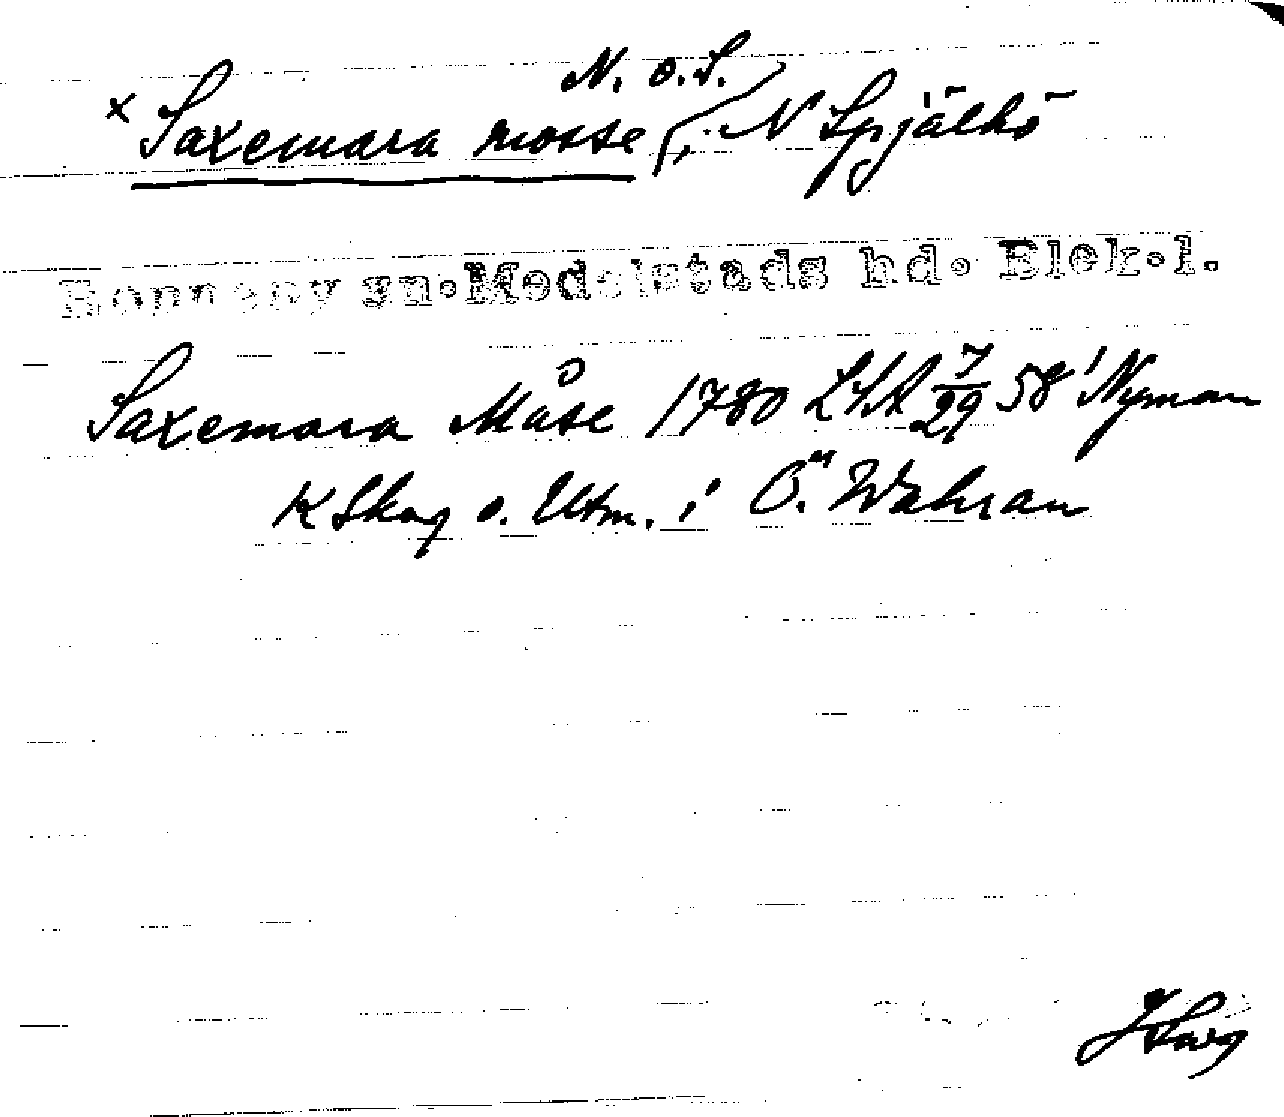 N. o. S.
x Saxemara mosse, N Spjälkö
Ronneby sn. Medelstads hd. Blek. l.
Saxemara Måse 1780 LSA 7/29 58' Nyman
K Skog o. Utm. i Ö. Wahran